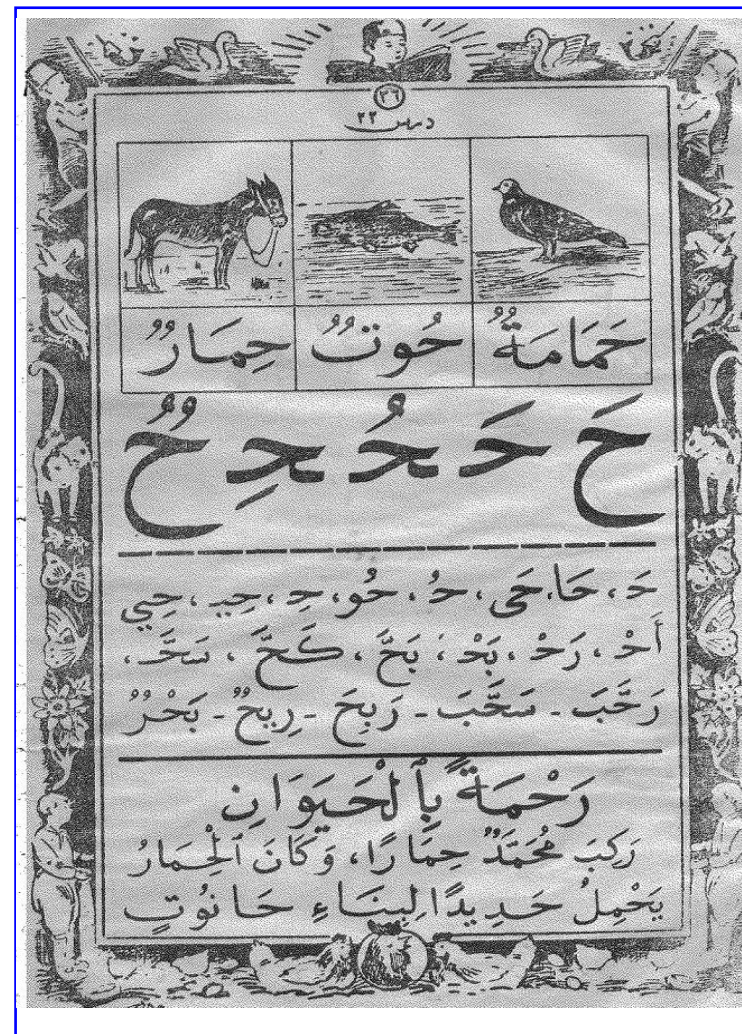 ٣٦
درس ٢٢
حَمَامَةٌ حُوتٌ حِمَارٌ
حَ حَـ ـحُـ ـحِـ حٌ
حَـ ، حَا، حَى ، حُـ ، حُو، حِـ ، حِيـ ، حِي
أَحْـ ، رَحْـ ، بَحْـ ، بَحَّ ، كَحَّ ، سَحَّـ ،
رَحَّبَ - سَحَّبَ - رَبِحَ - رِيحٌ - بَحْرٌ
رَحْمَةً بِٱلْحَيَوَانِ
رَكِبَ مُحَمَّدٌ حِمَارًا، وَكَانَ ٱلْحِمَارُ
يَحْمِلُ حَدِيدًا لِبِنَاءِ حَانُوتٍ